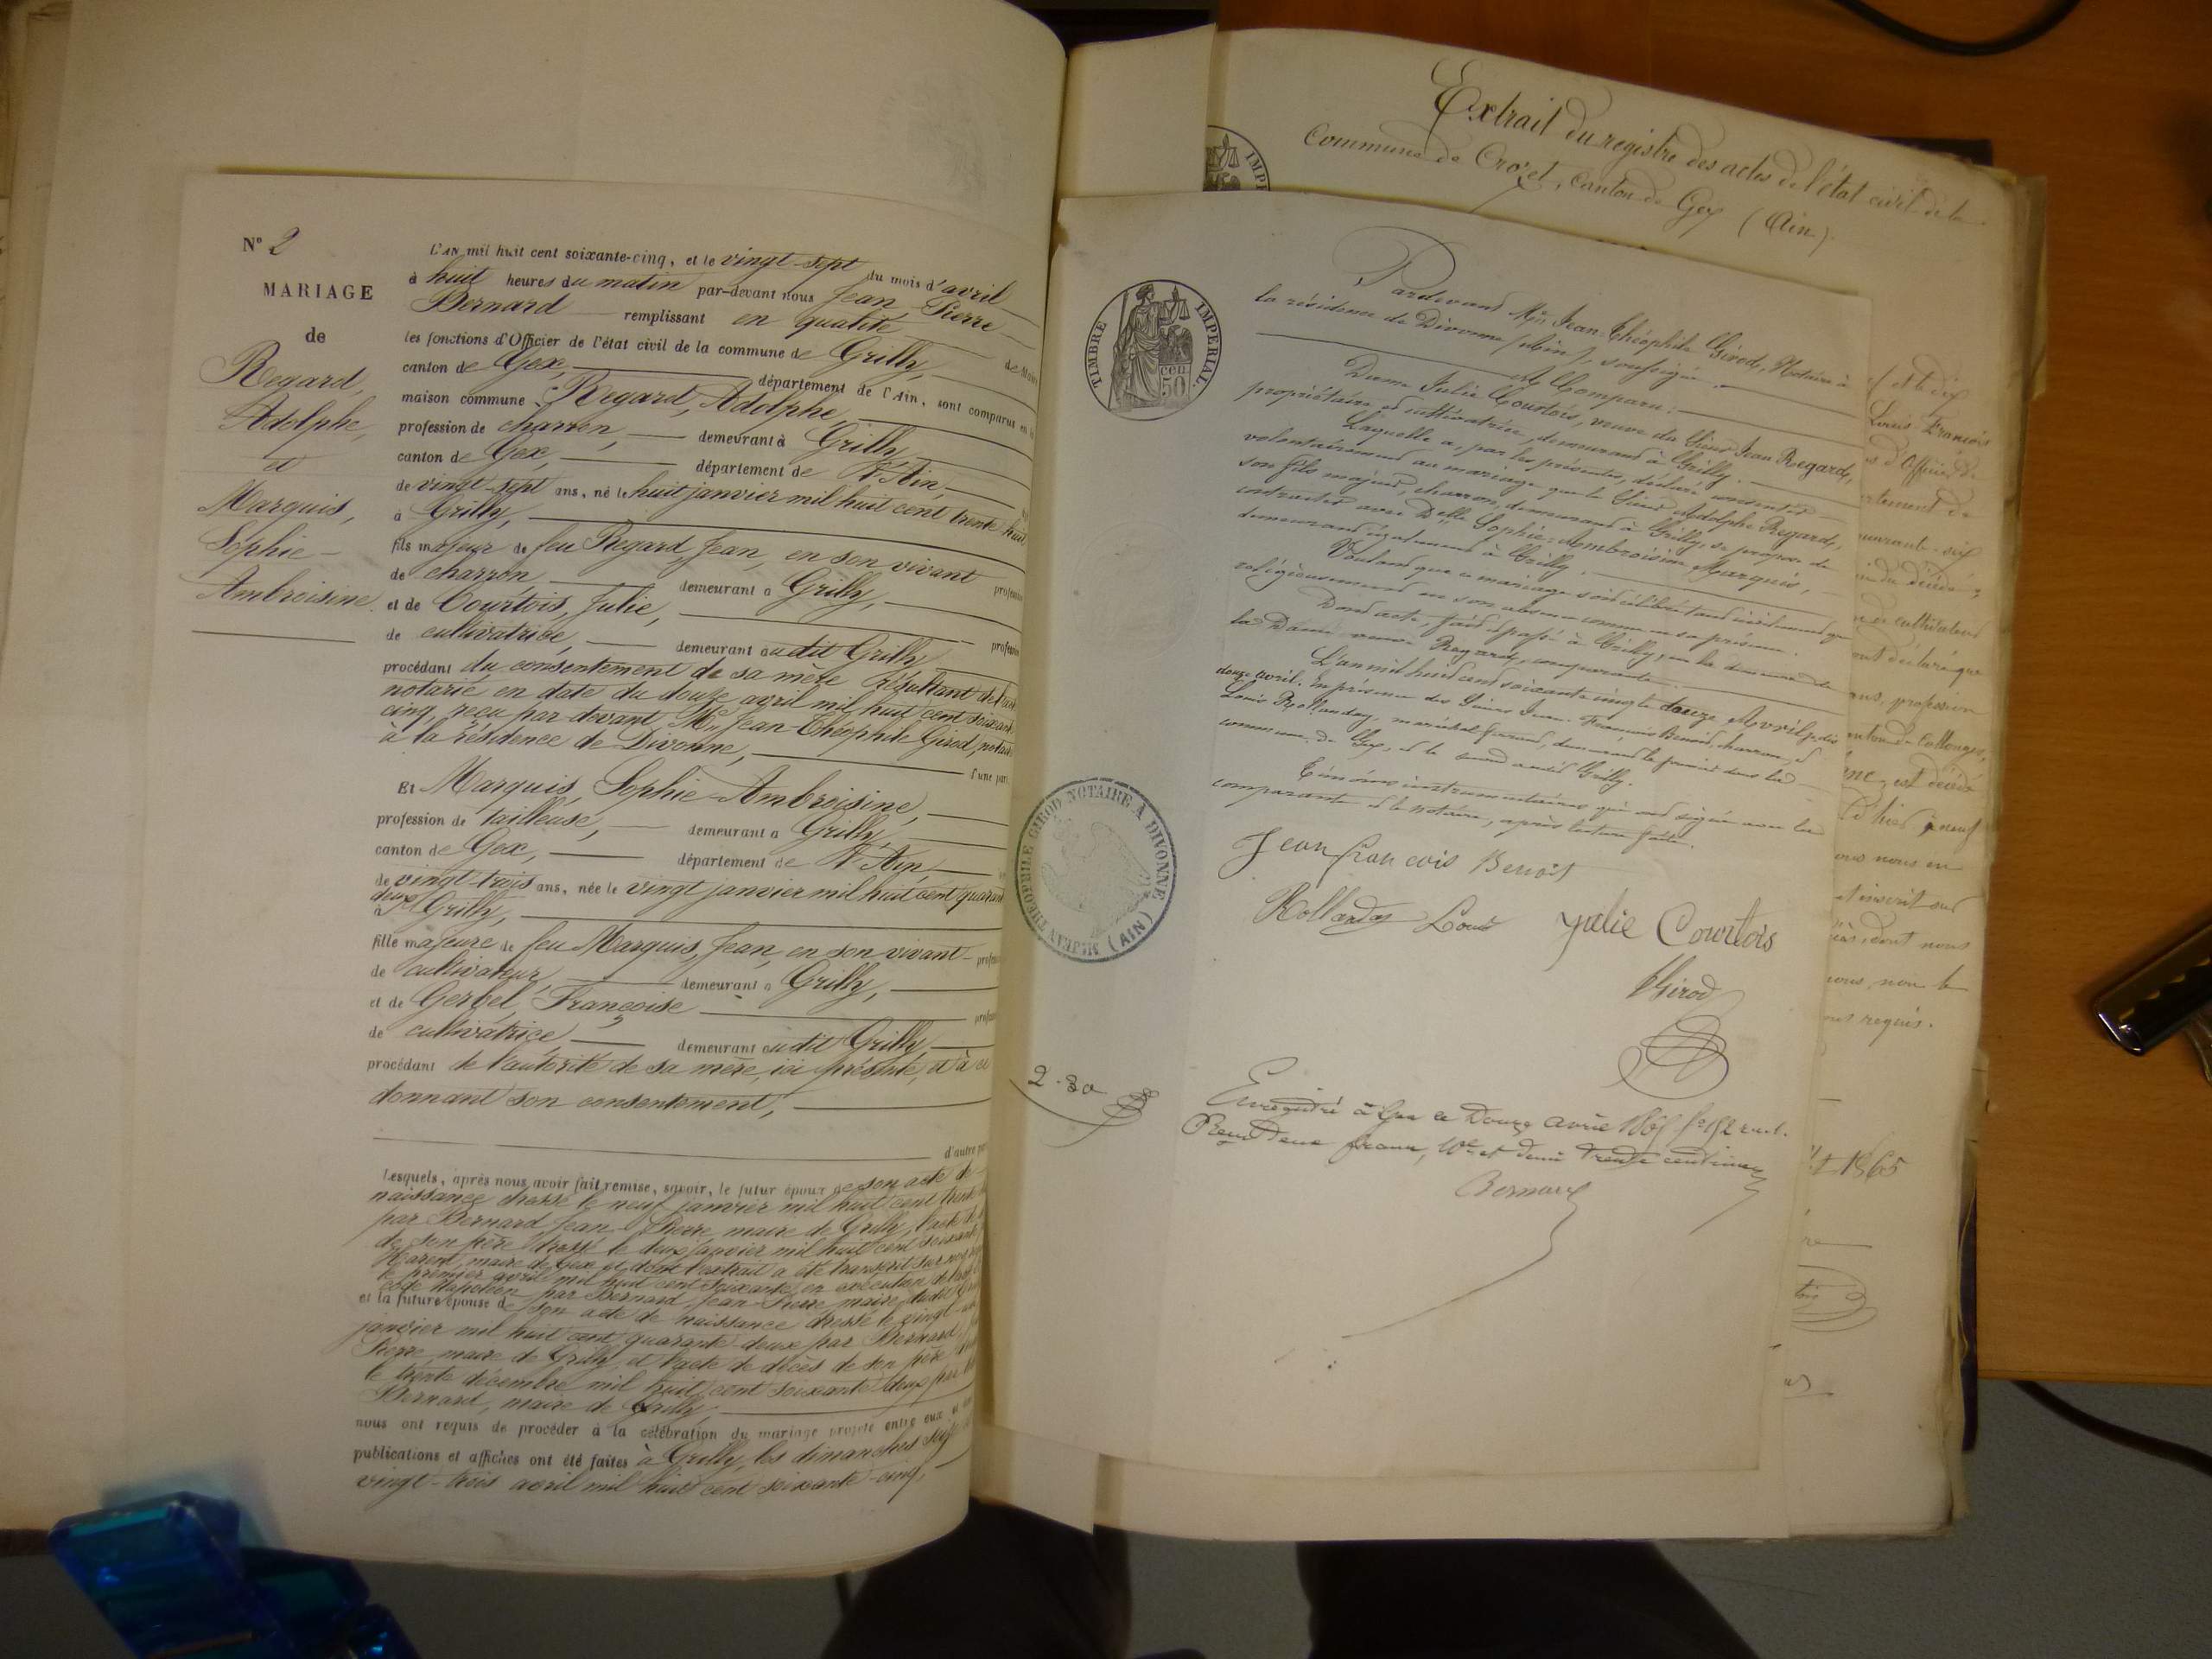 N° 2
MARIAGE
de
Regard,
Adolphe,
et
Marquis,
Sophie-
Ambroisine.
L'AN mil huit cent soixante-cinq, et le vingt-sept du mois d'avril
à huit heures du matin par-devant nous Jean Pierre
Bernard remplissant en qualité de Maire
les fonctions d'Officier de l'état civil de la commune de Grilly,
canton de Gex, département de l'Ain, sont comparus en la
maison commune : Regard, Adolphe,
profession de charron, demeurant à Grilly,
canton de Gex, département de l'Ain,
de vingt-sept ans, né le huit janvier mil huit cent trente huit
à Grilly,
fils majeur de feu Regard Jean, en son vivant profession
de charron demeurant à Grilly,
et de Courtois, Julie, profession
de cultivatrice, demeurant audit Grilly
procédant du consentement de sa mère résultant de l'acte
notarié en date du douze avril mil huit cent soixante
cinq, reçu par-devant Me Jean-Théophile Girod, notaire
à la résidence de Divonne,
d'une part.
Et Marquis, Sophie-Ambroisine,
profession de tailleuse, demeurant à Grilly,
canton de Gex, département de l'Ain,
de vingt-trois ans, née le vingt janvier mil huit cent quarante
deux
à Grilly,
fille majeure de feu Marquis, Jean, en son vivant profession
de cultivateur demeurant à Grilly,
et de Gerbel, Françoise profession
de cultivatrice demeurant audit Grilly
procédant de l'autorité de sa mère, ici présente, et à ce
donnant son consentement,
d'autre part
Lesquels, après nous avoir fait remise, savoir, le futur époux de son acte de
naissance dressé le neuf janvier mil huit cent trente
par Bernard Jean-Pierre, maire de Grilly, l'acte de
de son père dressé le deux janvier mil huit cent soixante
maire de Gex et dont l'extrait a été transcrit sur nos
le premier avril mil huit cent soixante, en exécution de
code Napoléon par Bernard Jean-Pierre maire dudit
et la future épouse de son acte de naissance dressé le vingt-un
janvier mil huit cent quarante-deux par Bernard
Pierre, maire de Grilly, et l'acte de décès de son père
le trente décembre mil huit cent soixante deux par
Bernard, maire de Grilly,
nous ont requis de procéder à la célébration du mariage projeté entre eux
publications et affiches ont été faites à Grilly, les dimanches
vingt-trois avril mil huit cent soixante-cinq,
Extrait du registre des actes de l'état civil de la
commune de Crozet, canton de Gex (Ain).
TIMBRE IMPÉRIAL
50 CEN
Pardevant Me Jean-Théophile Girod, Notaire à
la résidence de Divonne (Ain), soussigné.
A Comparu :
Dame Julie Courtois, veuve du Sieur Jean Regard,
propriétaire et cultivatrice, demeurant à Grilly.
Laquelle a, par les présentes, déclaré consentir
volontairement au mariage que le Sieur Adolphe Regard,
son fils majeur, charron, demeurant à Grilly, se propose de
contracter avec Delle Sophie-Ambroisine Marquis,
demeurant également à Grilly.
Voulant que ce mariage soit célébré tant civilement que
religieusement en son absence comme en sa présence.
Dont acte, fait et passé à Grilly, en la demeure de
la Dame veuve Regard, comparante.
L'an mil huit cent soixante cinq le douze Avril, je dis
douze avril. En présence des Sieurs Jean-François Benoit, charron, et
Louis Rollandey, maréchal ferrant, demeurant le premier dans la
commune de Gex, et le second audit Grilly.
Témoins instrumentaires qui ont signé avec la
comparante et le notaire, après lecture faite.
Jean françois Benoit
Rollanday Louis Julie Courtois
Girod
Me JEAN THEOPHILE GIROD NOTAIRE A DIVONNE (AIN)
2.30
Enregistré à Gex le Douze avril 1865
Reçu Deux francs, 10e et demi trente centimes
Bernard
et le dix
Louis François
d'Officier de
quarante-six
de cultivateur
ont déclaré que
ans, profession
canton de Collonges,
est décédé
nous en
inscrit sur
dont nous
nous, non le
requis.
1865